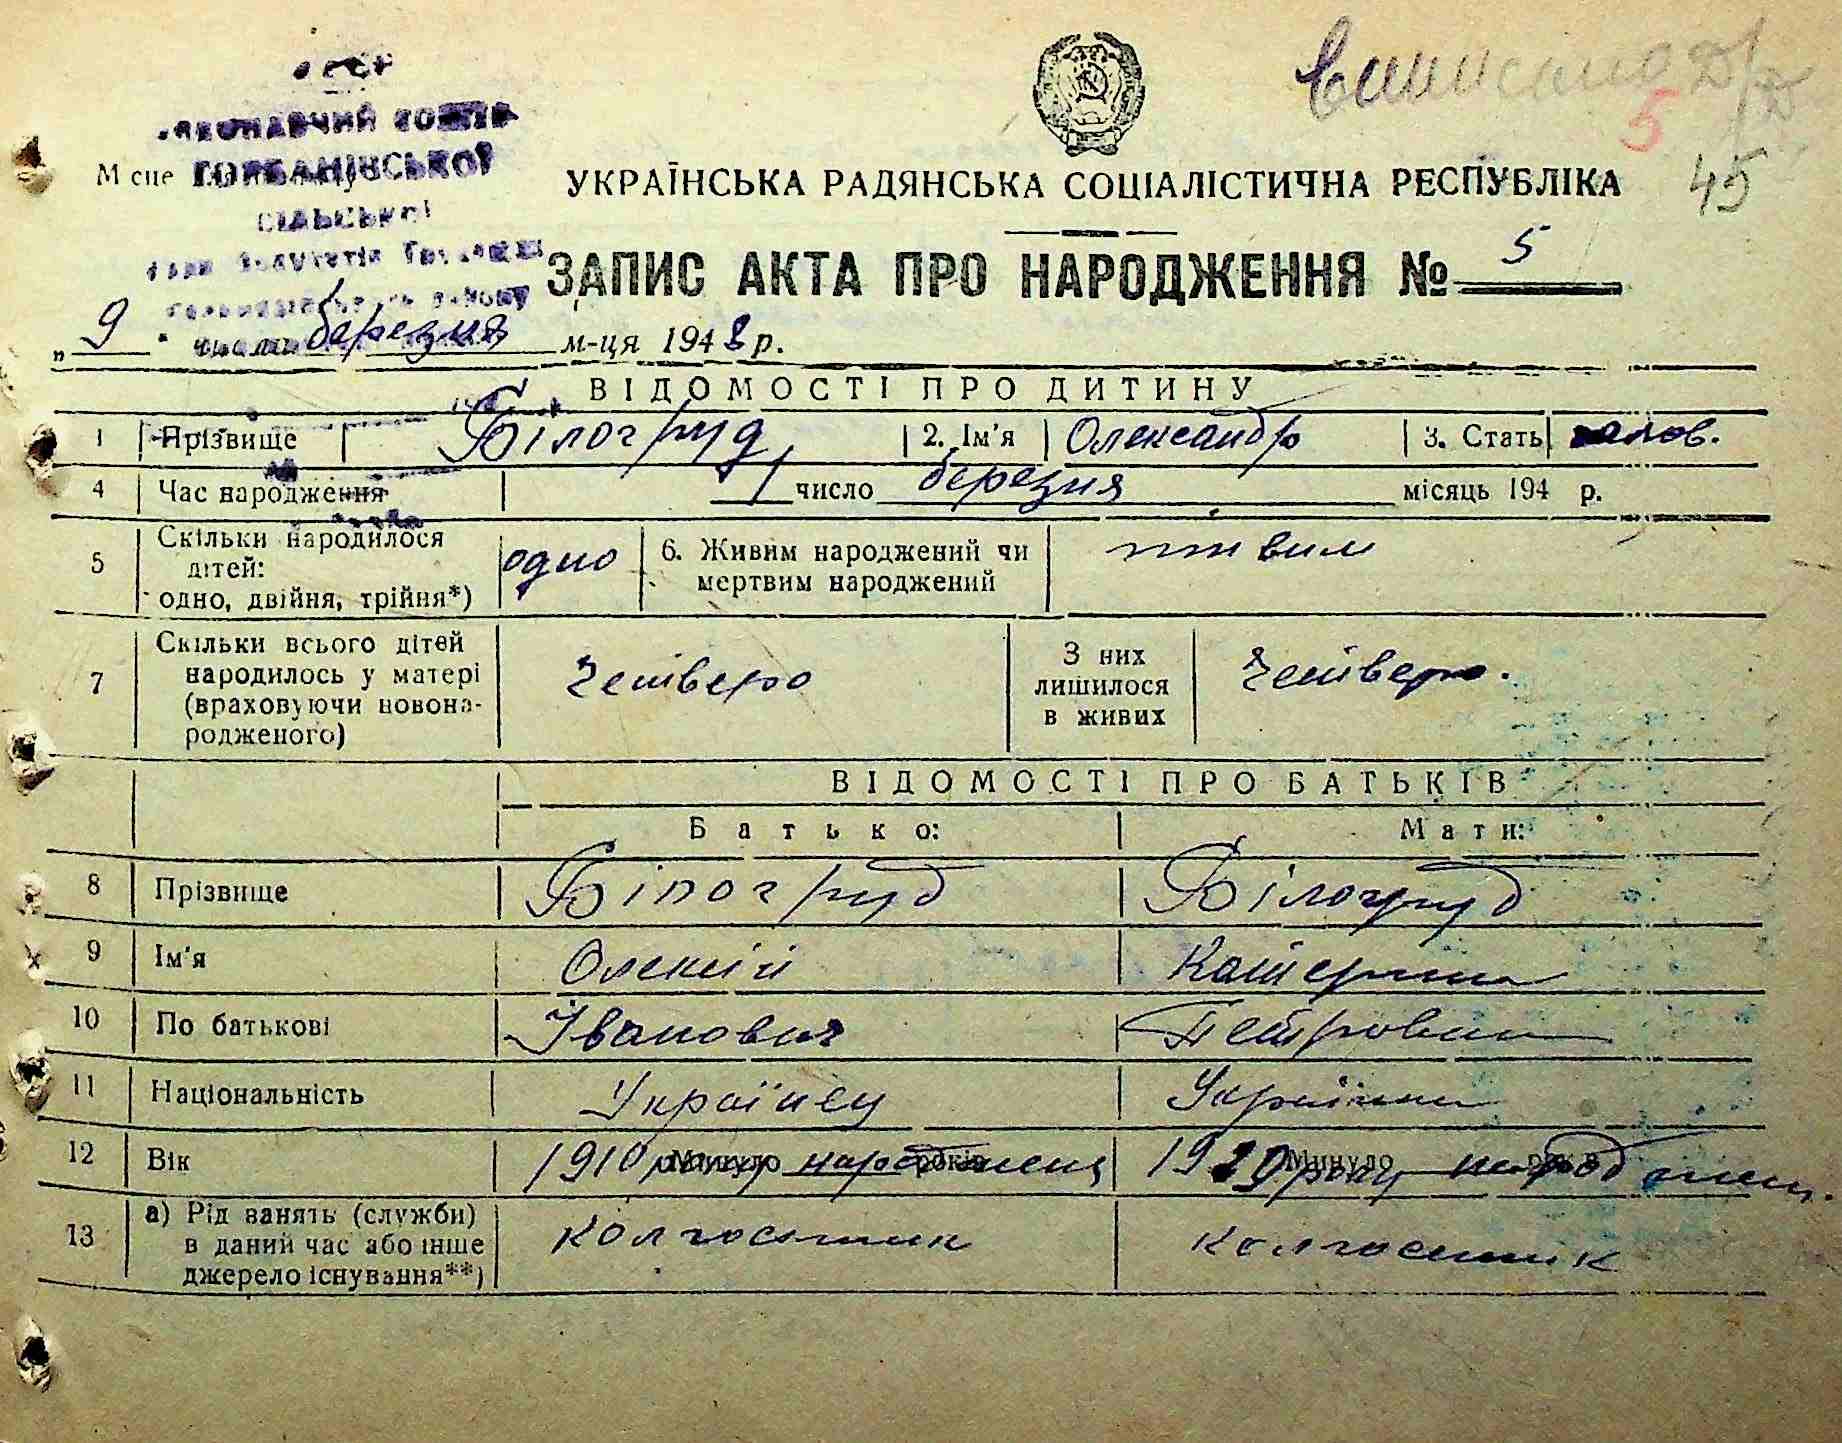 Виписано
5
45
ВИКОНАВЧИЙ КОМІТЕТ
ГОРБАНІВСЬКОЇ
СІЛЬСЬКОЇ
Місце
УКРАЇНСЬКА РАДЯНСЬКА СОЦІАЛІСТИЧНА РЕСПУБЛІКА
ЗАПИС АКТА ПРО НАРОДЖЕННЯ № 5
„ 9 " числа березня м-ця 1948 р.
ВІДОМОСТІ ПРО ДИТИНУ
1 Прізвище Білогруд 2. Ім'я Олександр 3. Стать чолов.
4 Час народження 1 число березня місяць 194 р.
5 Скільки народилося
дітей:
одно, двійня, трійня*) одно 6. Живим народжений чи
мертвим народжений живим
7 Скільки всього дітей
народилось у матері
(враховуючи новона-
родженого) Четверо З них
лишилося
в живих Четверо.
ВІДОМОСТІ ПРО БАТЬКІВ
Батько: Мати:
8 Прізвище Білогруд Білогруд
9 Ім'я Олексій Катерина
10 По батькові Іванович Петровна
11 Національність Українец Українка
12 Вік 1910 року народження 1920 року народжен.
13 а) Рід занять (служби)
в даний час або інше
джерело існування**) колгоспник колгоспник